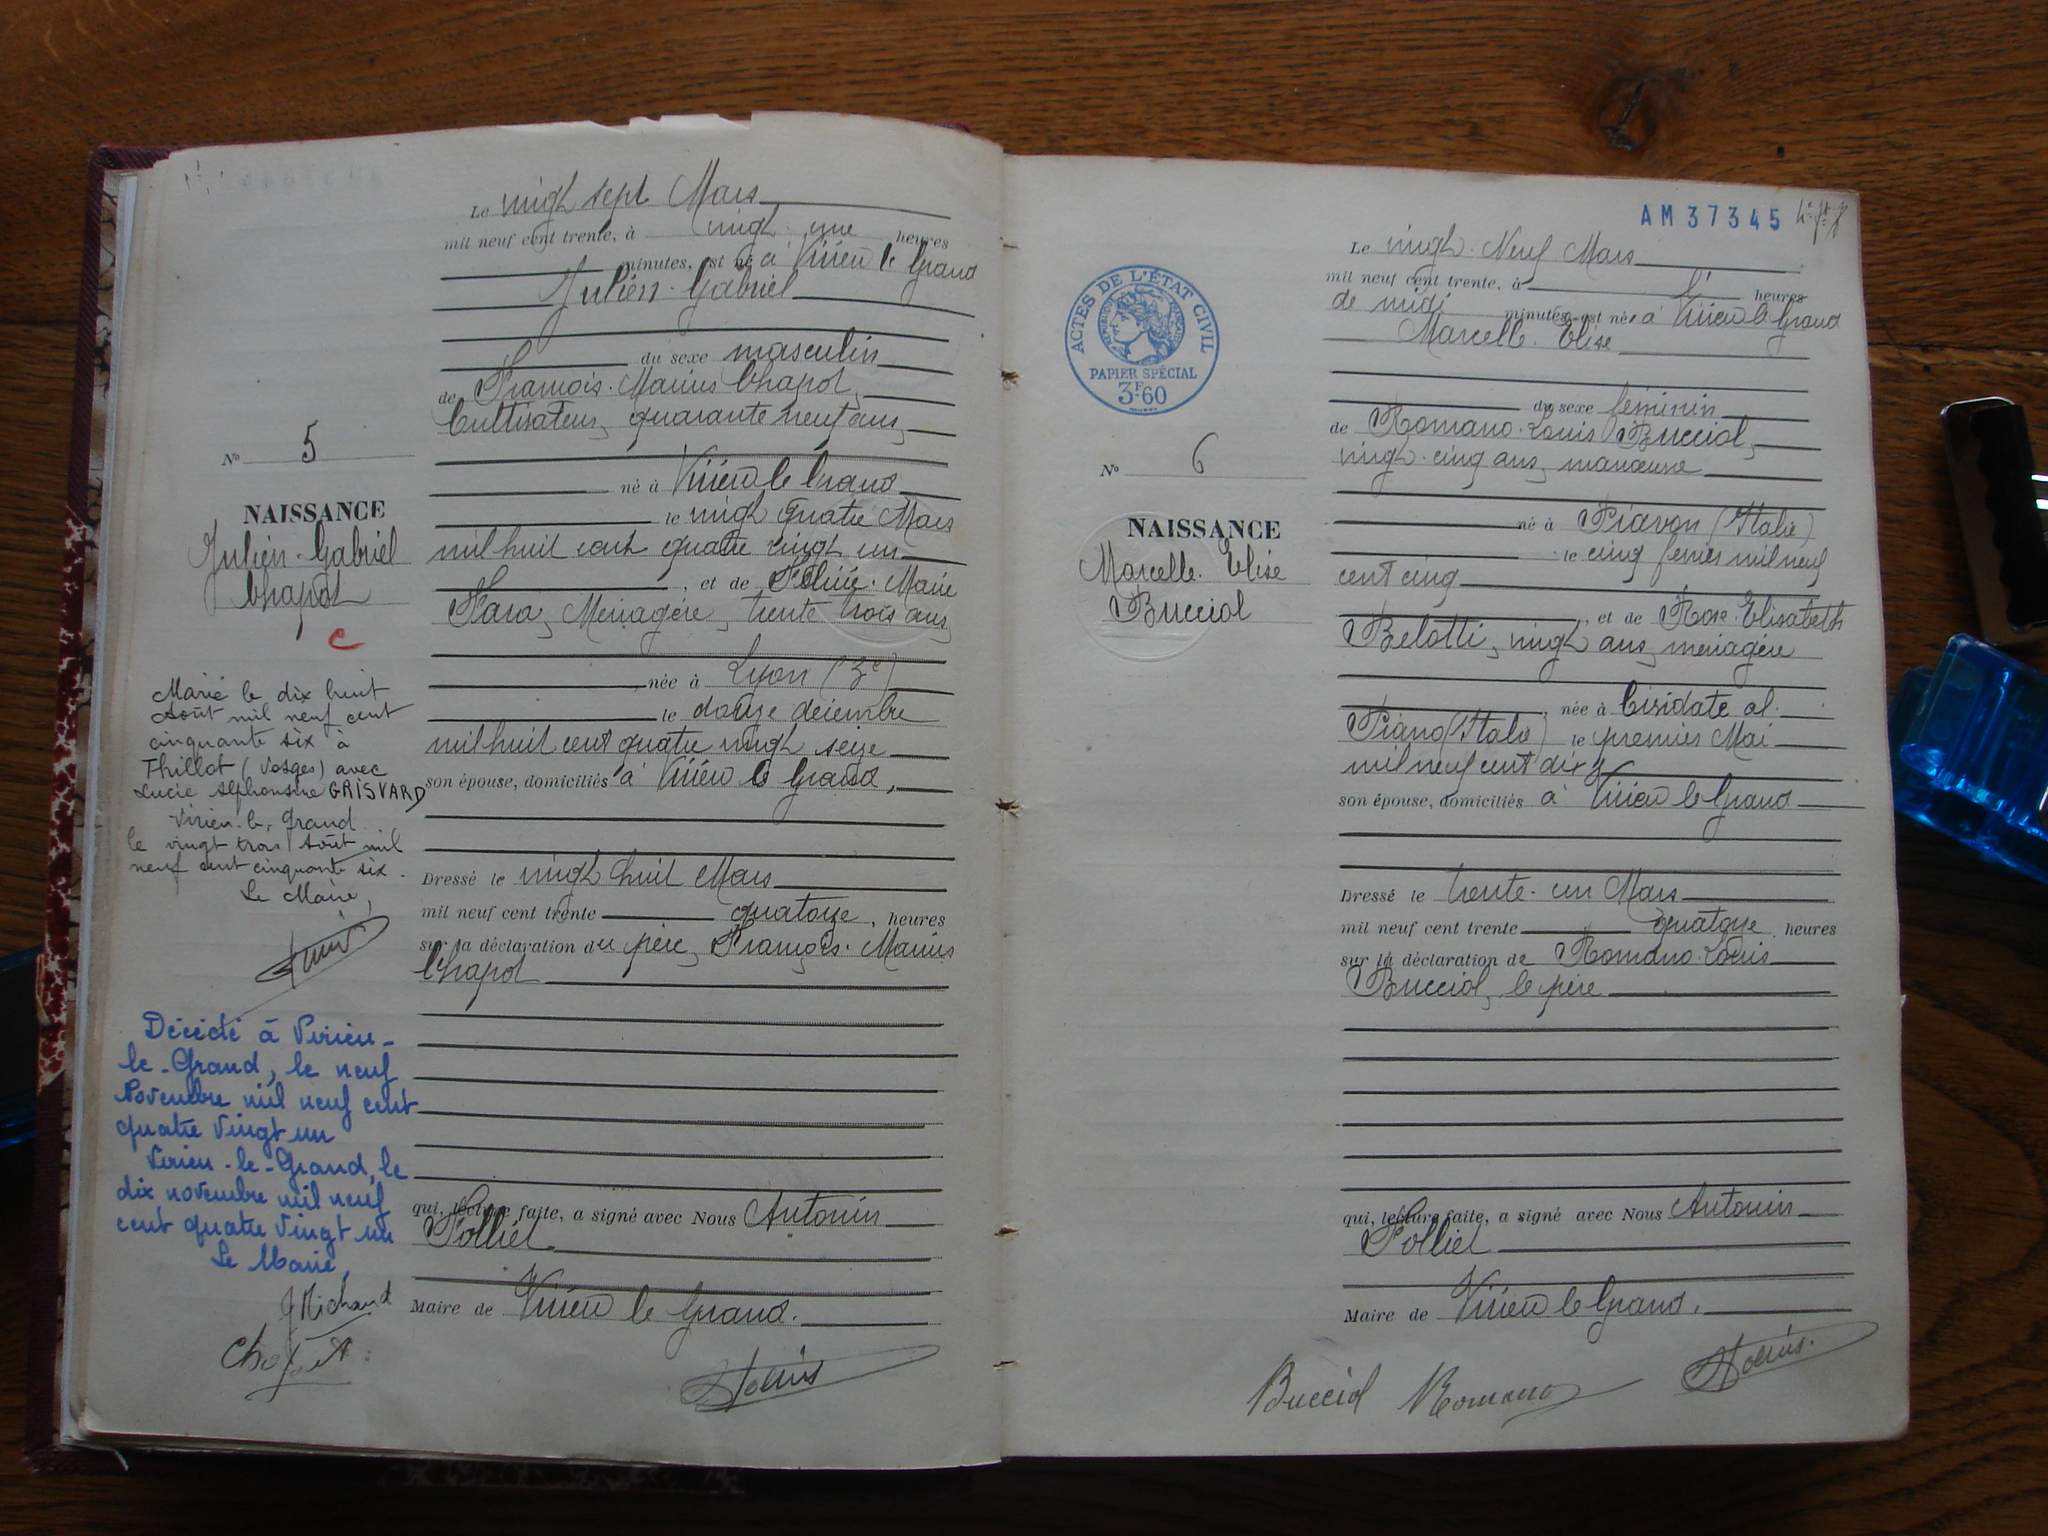 Le vingt sept Mars
mil neuf cent trente, à vingt une heures
minutes, est né à Virieu le Grand
Julien Gabriel
du sexe masculin
de François Marius Chapot,
Cultivateur, quarante neuf ans,
né à Virieu le Grand
le vingt quatre Mars
mil huit cent quatre vingt un
, et de Félicie Marie
Fara, Ménagère, trente trois ans,
née à Lyon (3e)
le douze décembre
mil huit cent quatre vingt seize
son épouse, domiciliés à Virieu le Grand,
Dressé le vingt huit Mars
mil neuf cent trente quatorze, heures
sur la déclaration du père, François Marius
Chapot
qui, lecture faite, a signé avec Nous Antonin
Polliet
Maire de Virieu le Grand.
No 5
NAISSANCE
Julien Gabriel
Chapot
C
Marié le dix huit
Août mil neuf cent
cinquante six à
Thillot (Vosges) avec
Lucie Alphonsine GRISVARD
Virieu-le-Grand
le vingt trois Août mil
neuf cent cinquante six.
Le Maire,
Décédé à Virieu-
le-Grand, le neuf
Novembre mil neuf cent
quatre vingt un
Virieu-le-Grand, le
dix novembre mil neuf
cent quatre vingt un
Le Maire,
JMichaud
Chapot
AM37345
Le vingt Neuf Mars
mil neuf cent trente, à heures
de midi minutes est née à Virieu le Grand
Marcelle Elise
du sexe féminin
de Romano Louis Bucciol,
vingt cinq ans, manœuvre
né à Piavon (Italie)
le cinq février mil neuf
cent cinq
, et de Rose Elisabeth
Belotti, vingt ans, ménagère
, née à Cividate al
Piano (Italie) le premier Mai
mil neuf cent dix
son épouse, domiciliés à Virieu le Grand
Dressé le trente un Mars
mil neuf cent trente quatorze heures
sur la déclaration de Romano Louis
Bucciol, le père
qui, lecture faite, a signé avec Nous Antonin
Polliet
Maire de Virieu le Grand.
ACTES DE L'ÉTAT CIVIL
PAPIER SPÉCIAL
3F.60
No 6
NAISSANCE
Marcelle Elise
Bucciol
Bucciol Romano